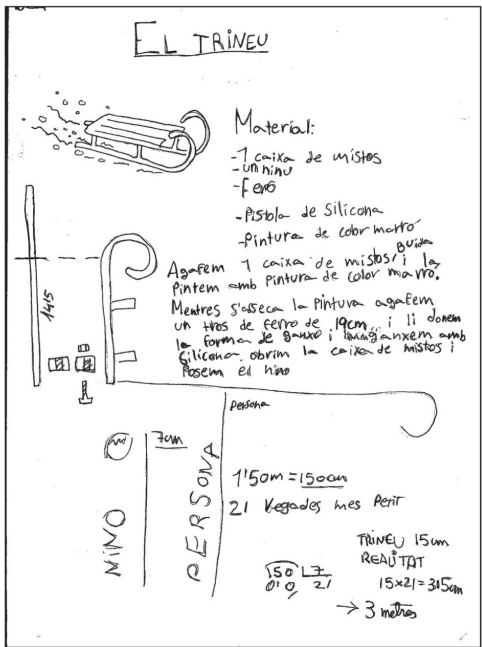 EL TRINEU
Material:
-1 caixa de mistos
-un ninu
-Ferō
-Pistola de Silicona
-Pintura de color marró
Agafem 1 caixa de mistos buida i la
Pintem amb Pintura de color marro.
Mentres s'asseca la Pintura agafem
un tros de ferro de 19cm i li donem
la forma de ganxo i enganxem amb
silicona. obrim la caixa de mistos i
Posem el nino
1415
Persona
7cm
NINO
PERSONA
1'50m = 150cm
21 Vegades mes Petit
150 7
010 21
TRINEU 15cm
REALITAT
15x21=315cm
→ 3 metres